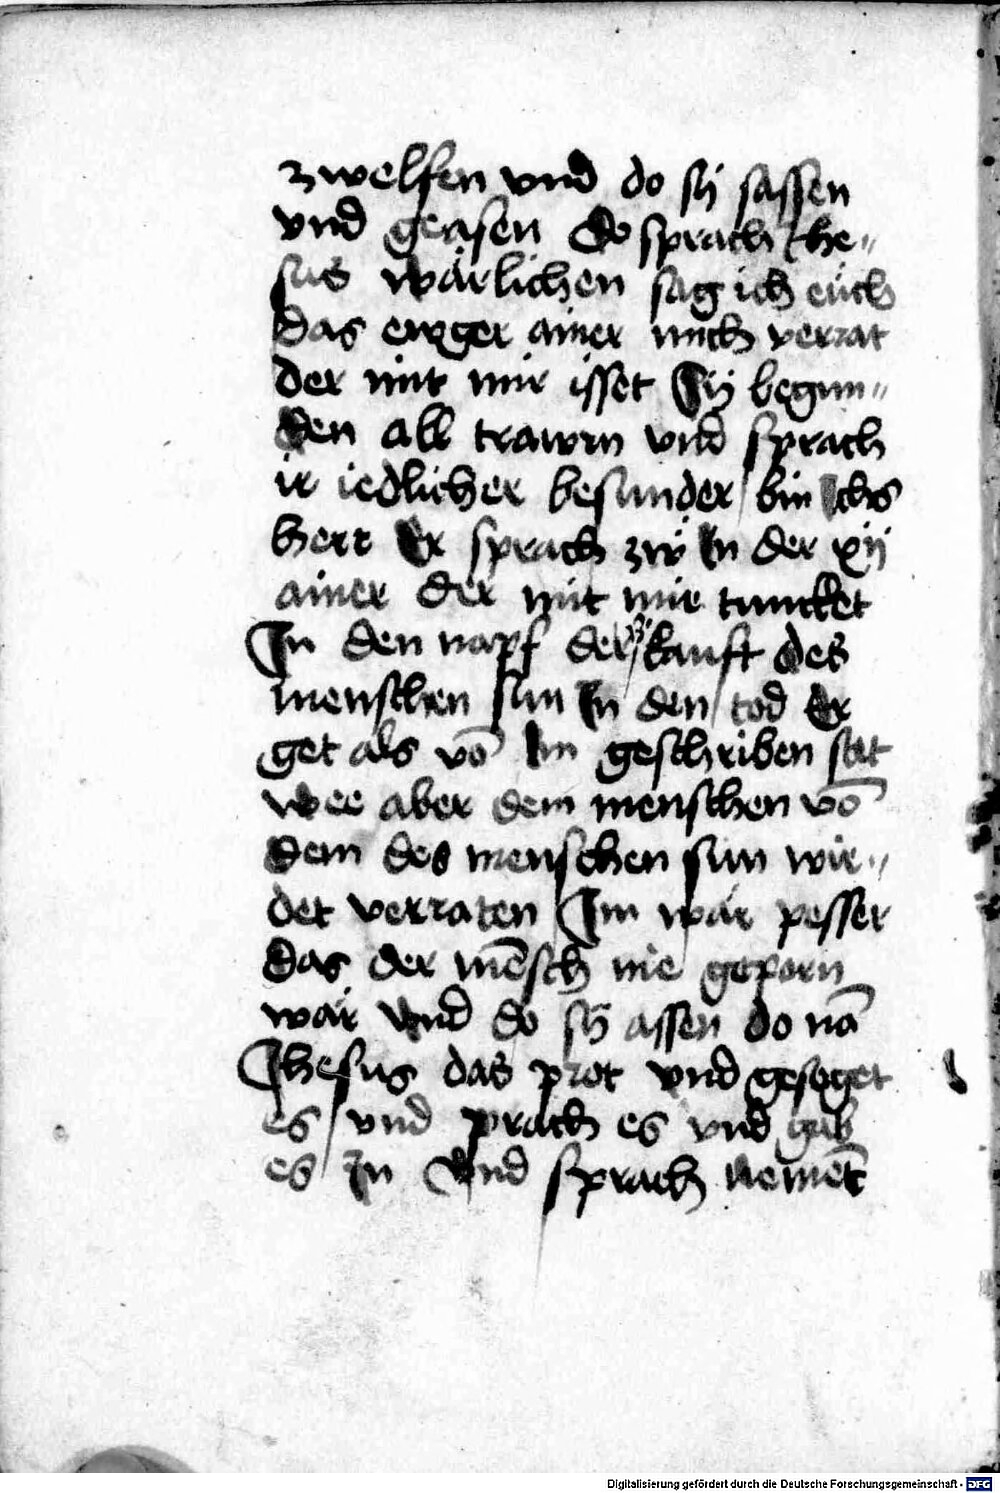 zwelfen vnd do sÿ sassen
vnd gensen Do sprach Ihe„
sus wärlichen sag ich eüch
das ewger ainer mich verrat
der mit mir isset Sÿ begun„
den all trawrn vnd sprach
ir iedlicher besunder bin ichs
herr Er sprach zw In der xij
ainer der mit mir tuncket
In den napf der kauft des
menschen sun In den tod Er
get als vō Im geschriben stet
wee aber dem menschen vō
dem des menschen sun wir„
det verraten Im wär pesser
das der mēsch nie geporn
wär Vnd do sÿ assen do nā
Ihesus das prot vnd geseget
es vnd prach es vnd gab
es In Vnd sprach nemēt
Digitalisierung gefördert durch die Deutsche Forschungsgemeinschaft - DFG